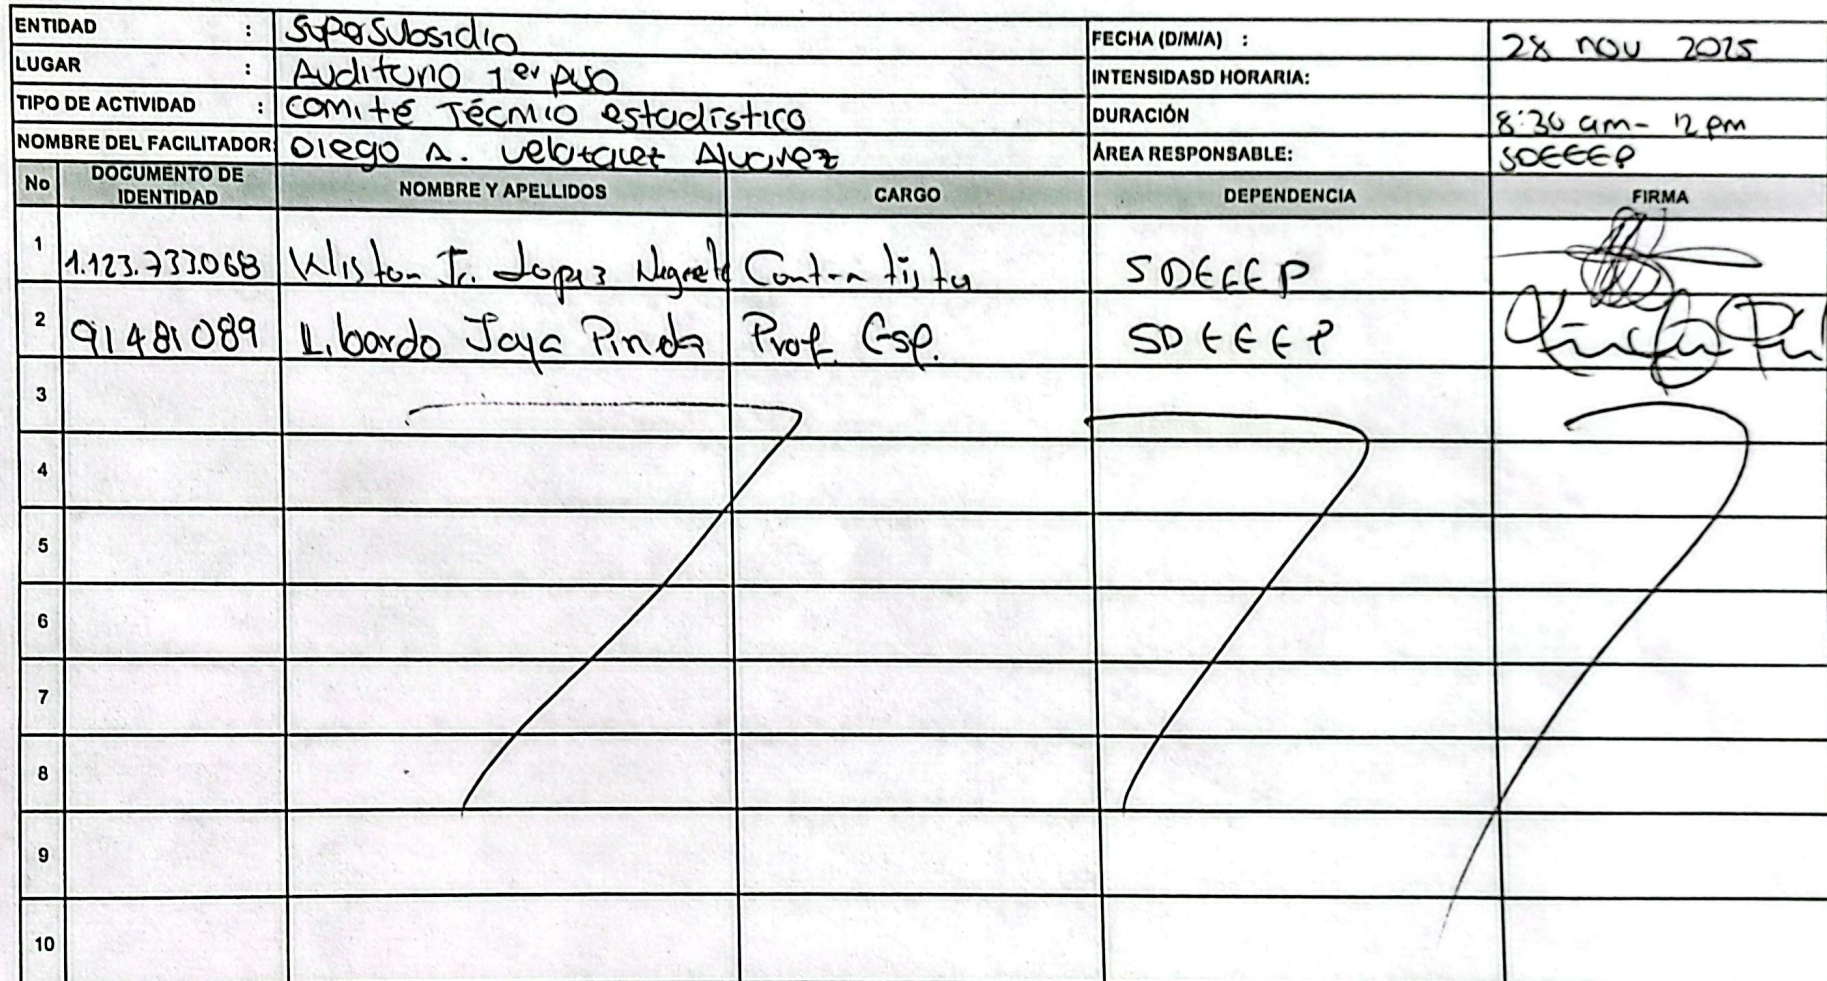 ENTIDAD : SuperSubsidio FECHA (D/M/A) : 28 nov 2025
LUGAR : Auditorio 1er piso INTENSIDASD HORARIA:
TIPO DE ACTIVIDAD : Comité Técnico estadístico DURACIÓN 8:30 am - 12 pm
NOMBRE DEL FACILITADOR: Diego A. Velazquez Alvarez ÁREA RESPONSABLE: SDEEEP
No DOCUMENTO DE IDENTIDAD NOMBRE Y APELLIDOS CARGO DEPENDENCIA FIRMA
1 1.123.733.068 Wliston Jr. Lopez Negrete Contratista SDEEEP
2 91481089 Libardo Joya Pineda Prof. Esp. SDEEEP
3
4
5
6
7
8
9
10